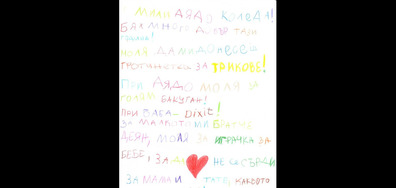 МИЛИ ДЯДО КОЛЕДА!
БЯХ МНОГО ДОБЪР ТАЗИ
ГОДИНА!
МОЛЯ ДА МИ ДОНЕСЕШ
ЗА ТАНКОВЕ!
ПРИ ДЯДО МОЛЯ ЗА
ГОЛЯМ БАКУГАН!
ПРИ БАБА - Dixit!
ЗА МАЛКОТО МИ БРАТЧЕ
ДЕЯН, МОЛЯ ЗА ИГРАЧКА ЗА
БЕБЕ, ЗА НЕ СЕ СЪРДИ
ЗА МАМА И ТАТЕ, КАКВОТО